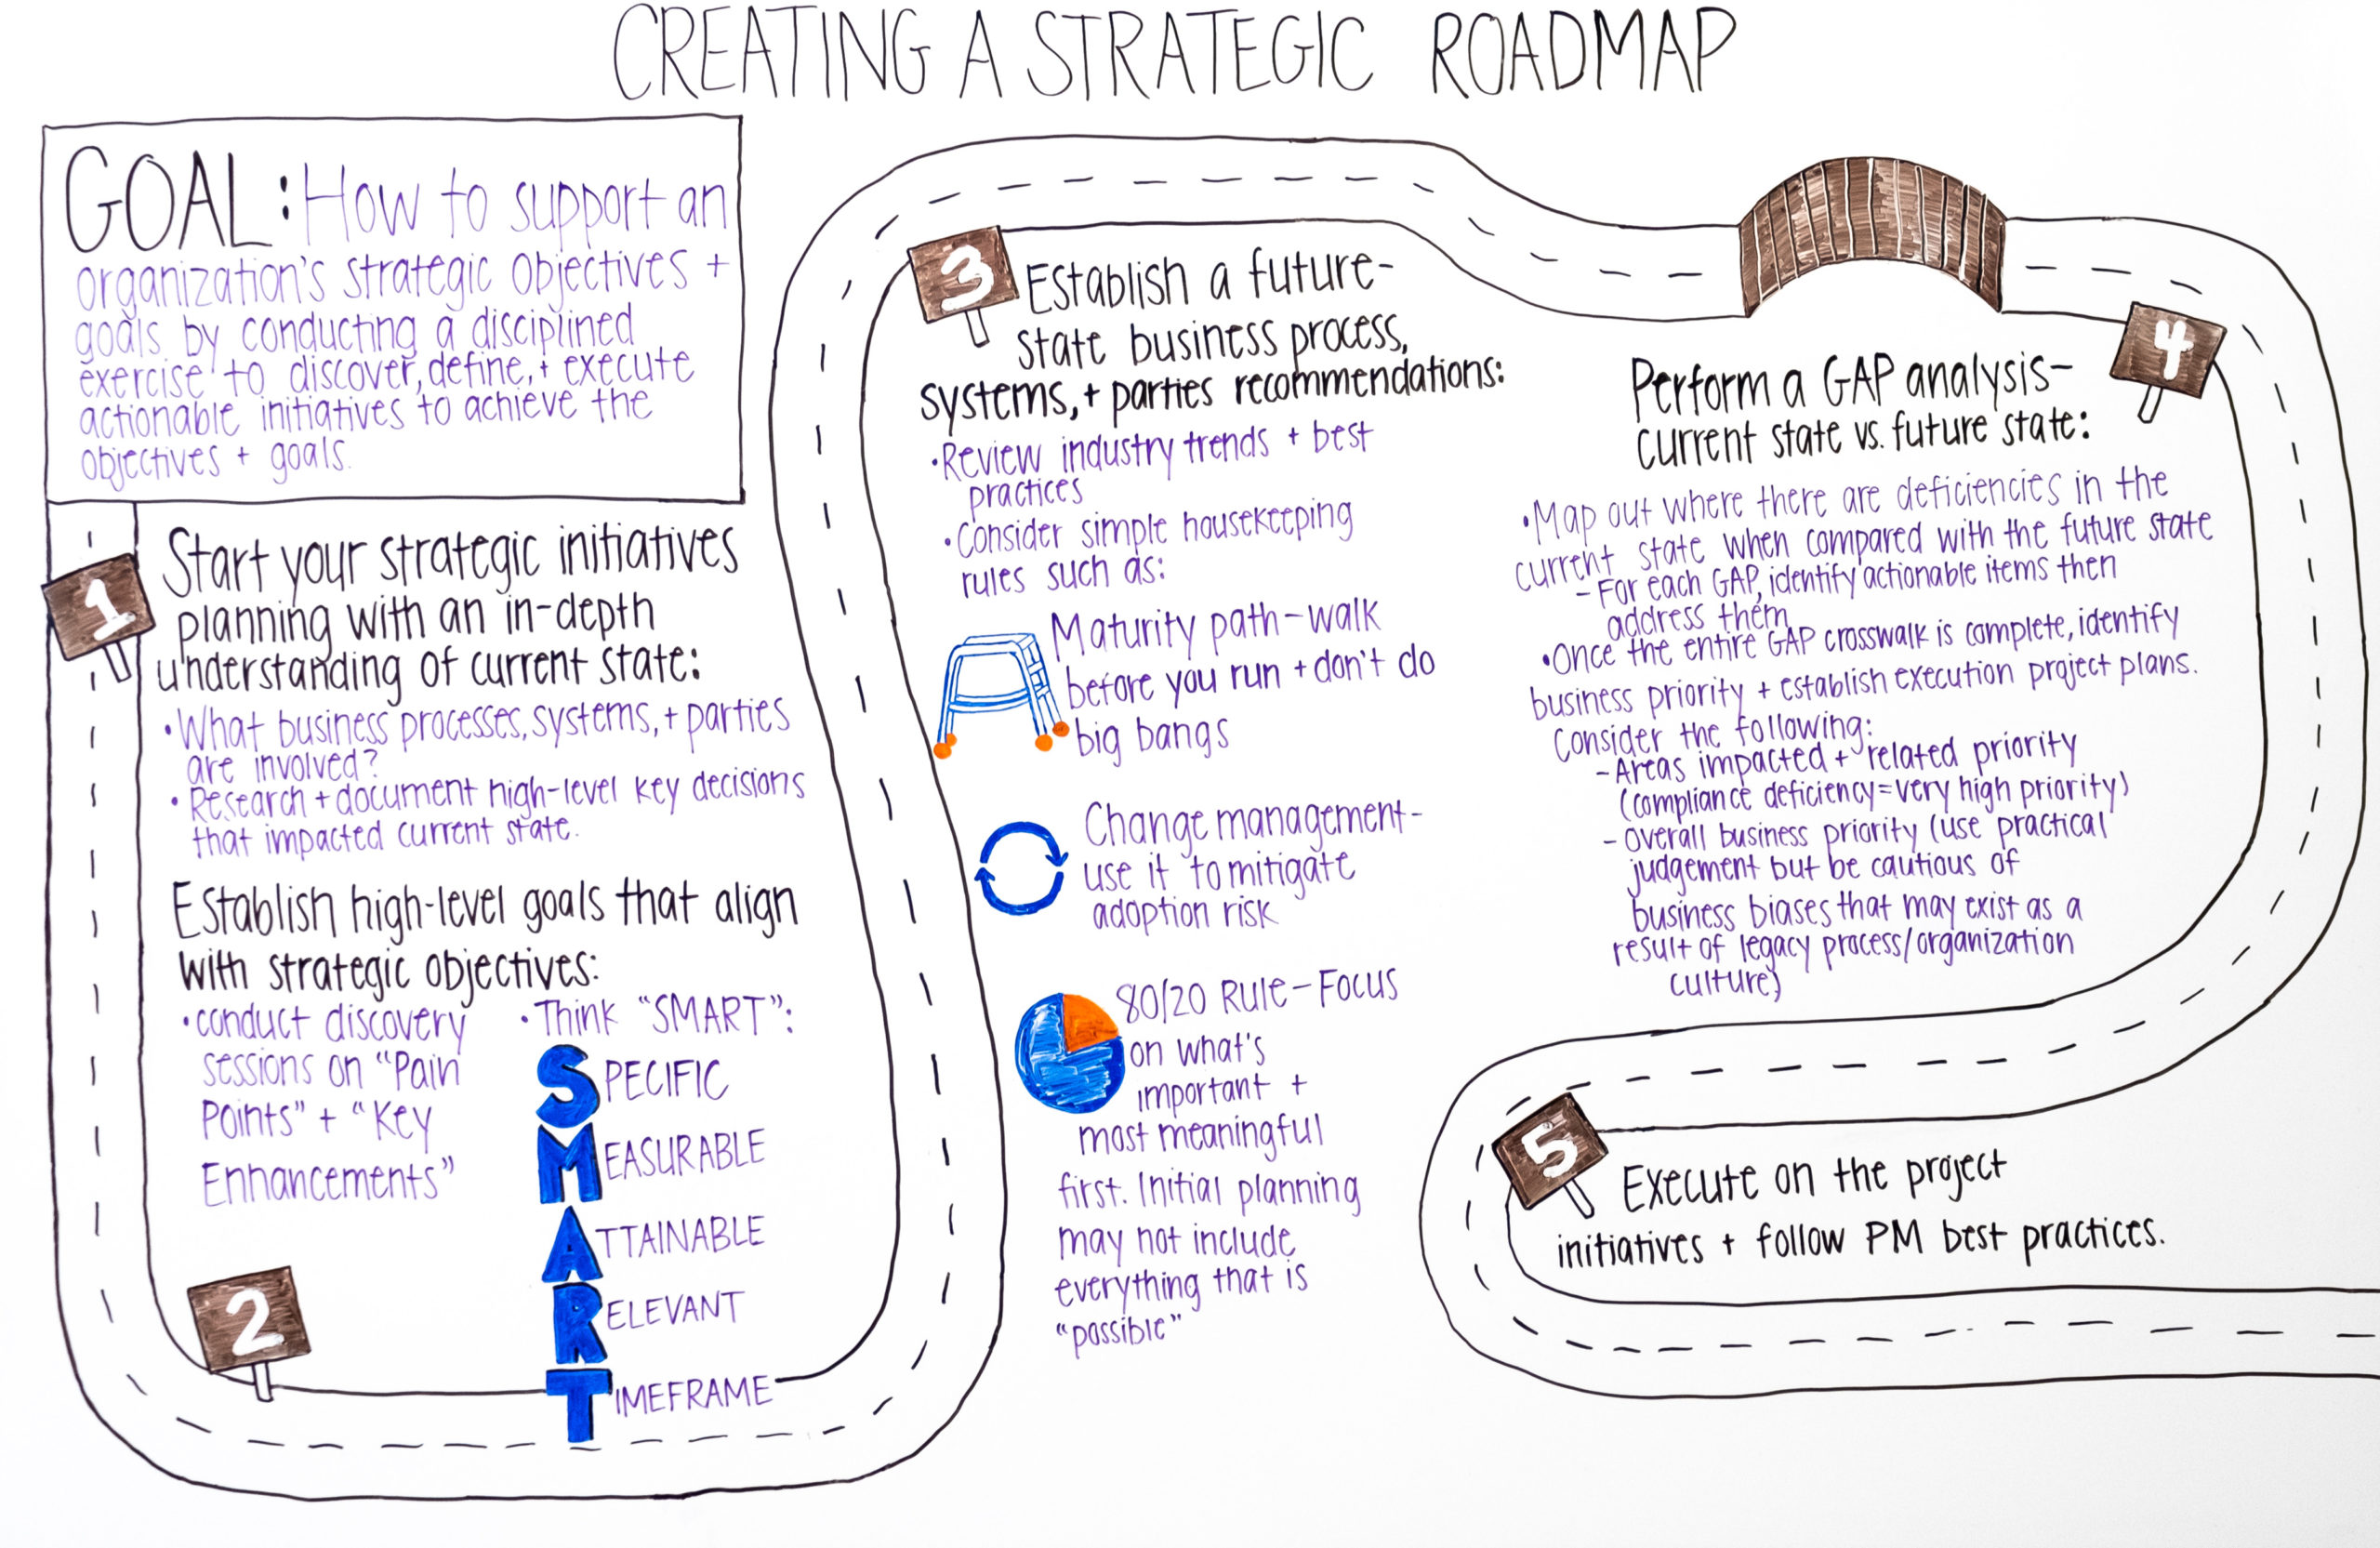 CREATING A STRATEGIC ROADMAP
GOAL: How to support an
organization's strategic objectives +
goals by conducting a disciplined
exercise to discover, define, + execute
actionable initiatives to achieve the
objectives + goals.
1
Start your strategic initiatives
planning with an in-depth
understanding of current state:
• What business processes, systems, + parties
are involved?
• Research + document high-level key decisions
that impacted current state.
2
Establish high-level goals that align
with strategic objectives:
• conduct discovery
sessions on "Pain
Points" + "Key
Enhancements"
• Think "SMART":
SPECIFIC
MEASURABLE
ATTAINABLE
RELEVANT
TIMEFRAME
3
Establish a future-
state business process,
systems, + parties recommendations:
• Review industry trends + best
practices
• Consider simple housekeeping
rules such as:
Maturity path - walk
before you run + don't do
big bangs
Change management -
use it to mitigate
adoption risk
80/20 Rule - Focus
on what's
important +
most meaningful
first. Initial planning
may not include
everything that is
"possible"
4
Perform a GAP analysis -
current state vs. future state:
• Map out where there are deficiencies in the
current state when compared with the future state
- For each GAP, identify actionable items then
address them
• Once the entire GAP crosswalk is complete, identify
business priority + establish execution project plans.
Consider the following:
- Areas impacted + related priority
(compliance deficiency = very high priority)
- Overall business priority (use practical
judgement but be cautious of
business biases that may exist as a
result of legacy process/organization
culture)
5
Execute on the project
initiatives + follow PM best practices.